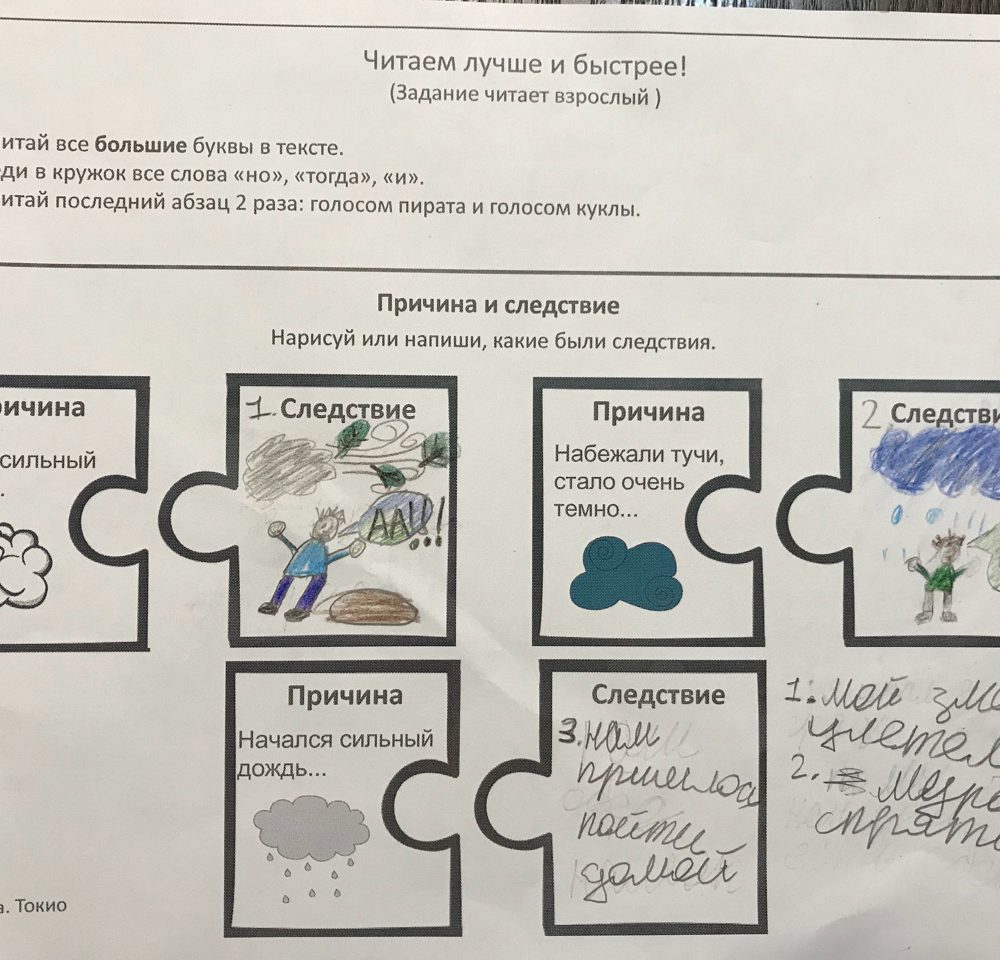 Читаем лучше и быстрее!
(Задание читает взрослый )
итай все большие буквы в тексте.
ди в кружок все слова «но», «тогда», «и».
итай последний абзац 2 раза: голосом пирата и голосом куклы.
Причина и следствие
Нарисуй или напиши, какие были следствия.
ричина
сильный
.
1. Следствие
АА!!!
Причина
Набежали тучи,
стало очень
темно...
2 Следстви
Причина
Начался сильный
дождь...
Следствие
3. нам
пришлось
пойти
домой
1. мой зме
улетел
2.
спрят
а. Токио